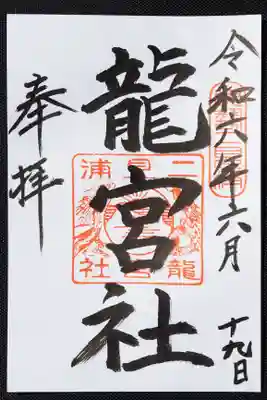 令和六年六月
十九日
龍宮社
二見浦
龍宮社
奉拝